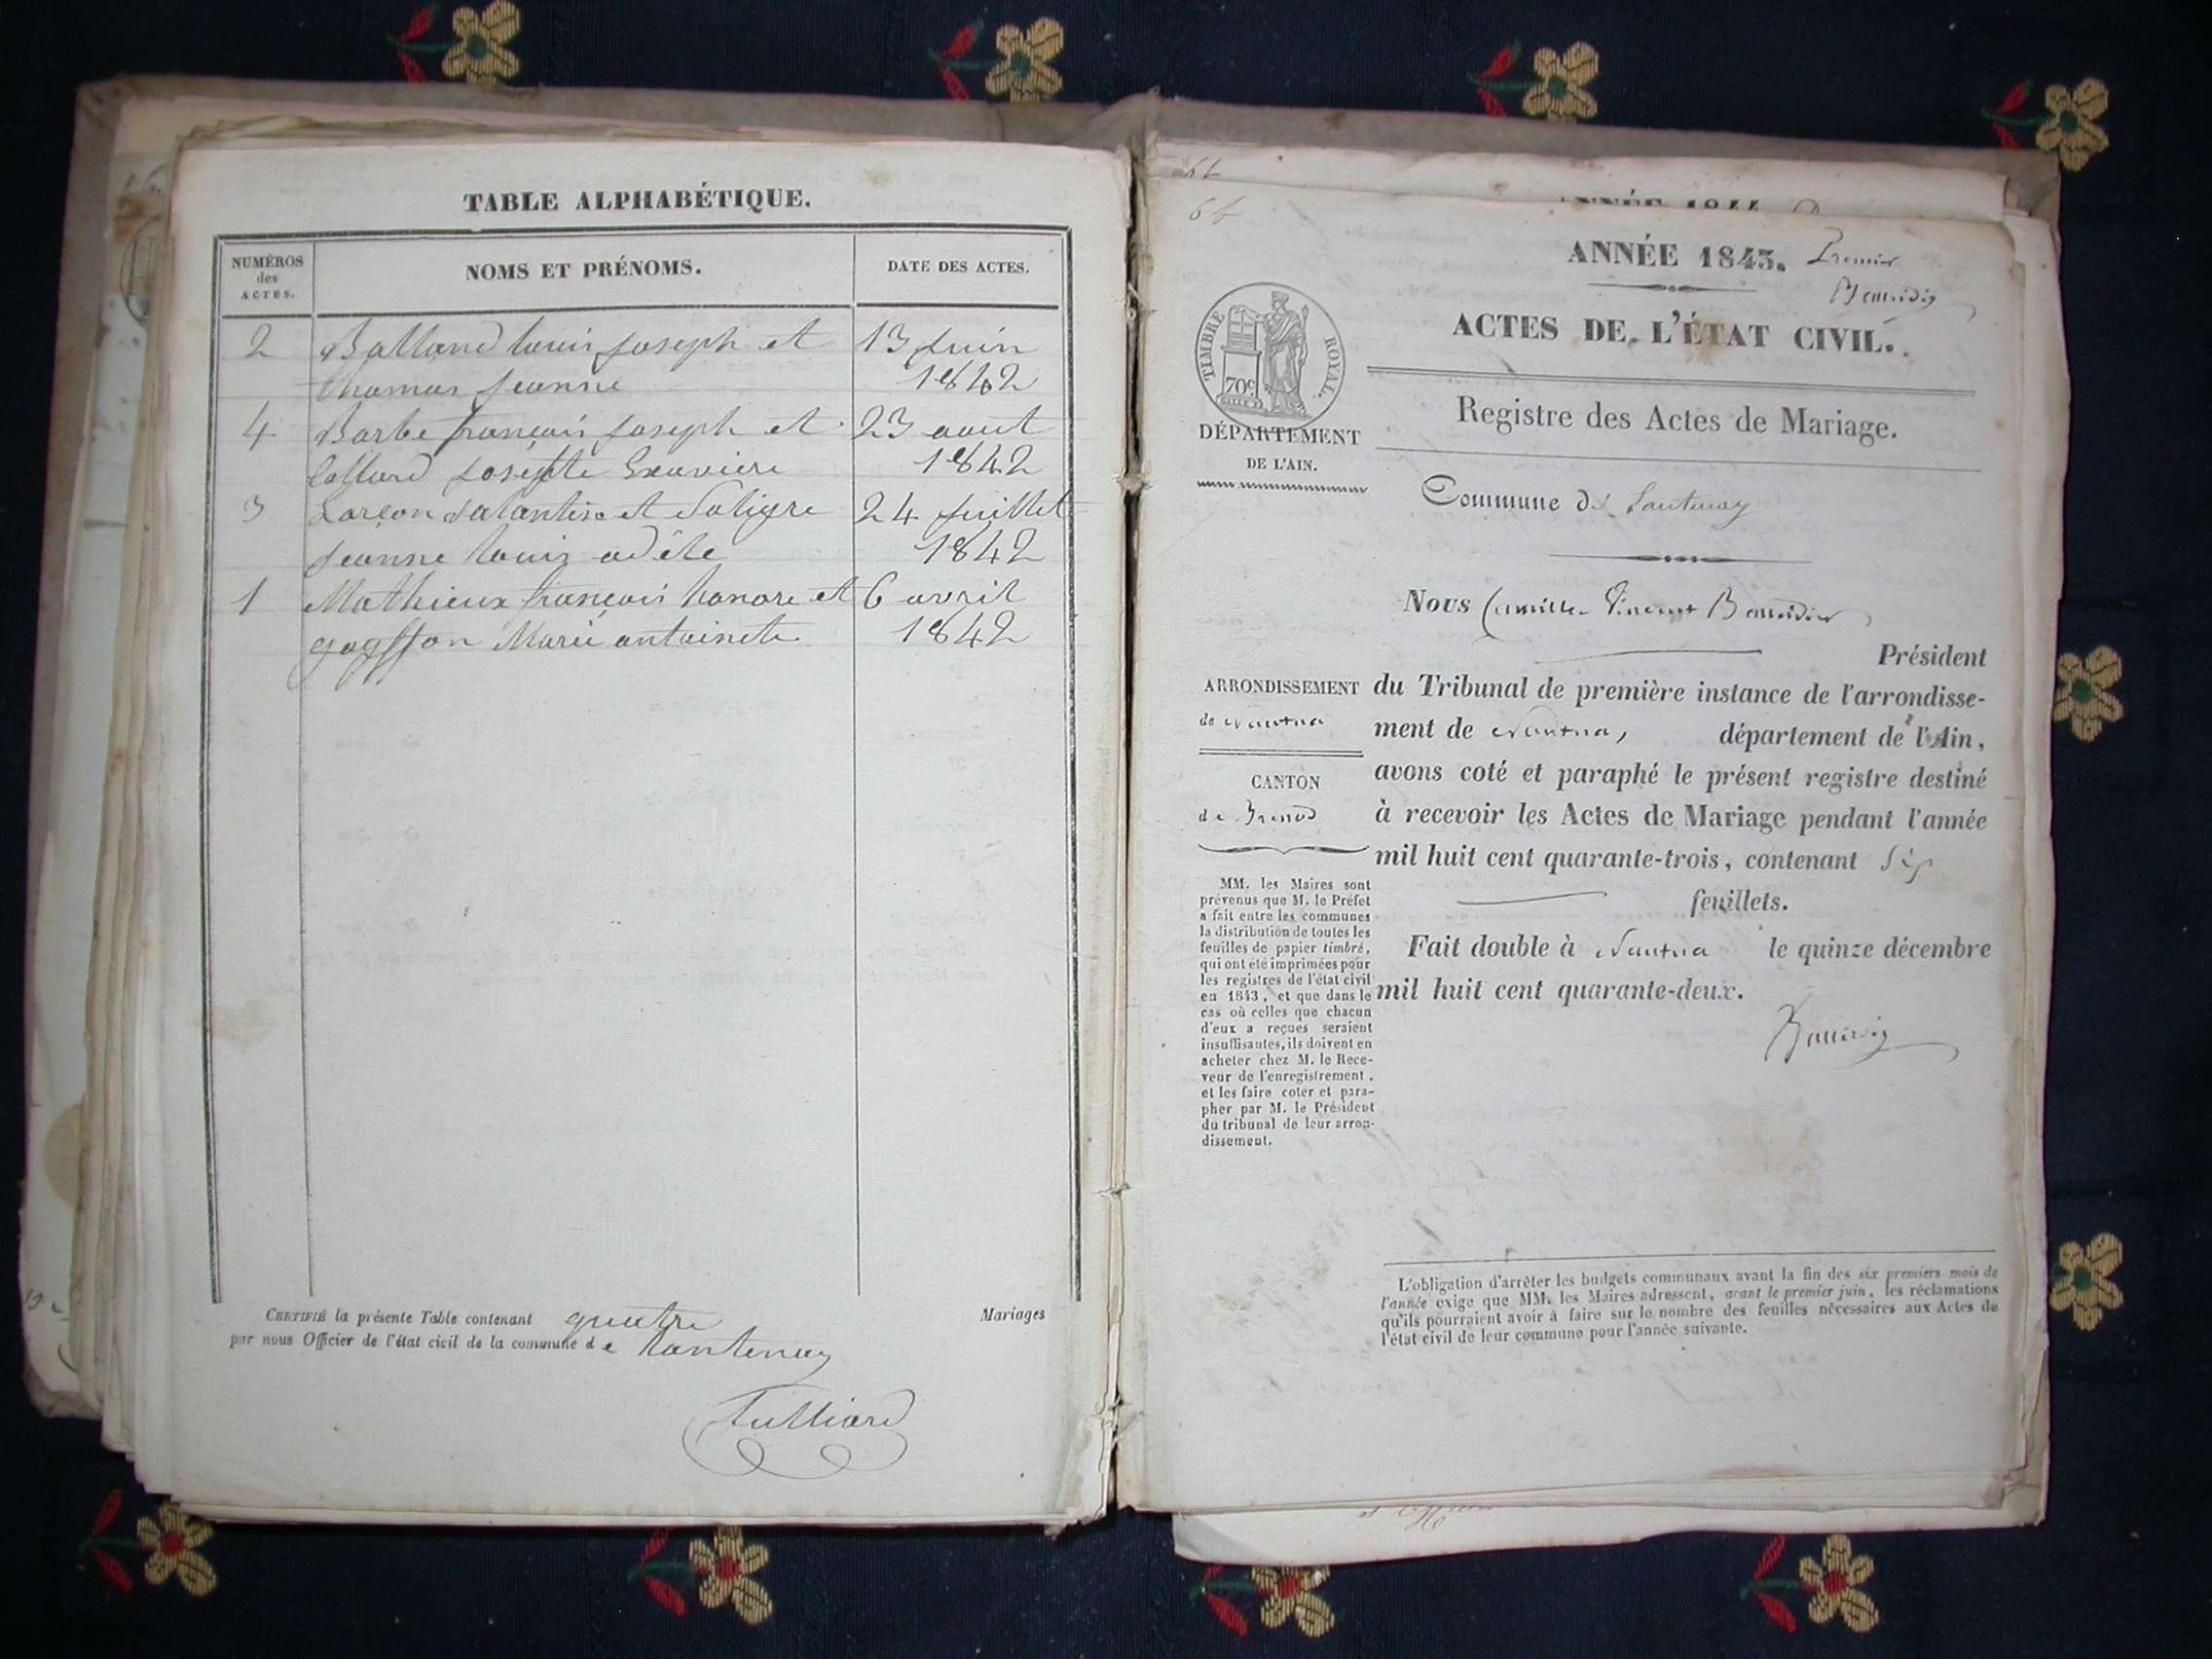 TABLE ALPHABÉTIQUE.
NUMÉROS
des
ACTES.
NOMS ET PRÉNOMS.
DATE DES ACTES.
2 Balland louis joseph et 13 juin
thomas jeanne 1842
4 Barbe françois joseph et 23 aout
Collard josephte Exavière 1842
3 et 24 juillet
jeanne louis adéle 1842
1 Mathieux françois honore et 6 avril
Marie antoinete 1842
CERTIFIÉ la présente Table contenant quatre Mariages
par nous Officier de l'état civil de la commune de lantenay
Julliard
64
64
ANNÉE 1844
ANNÉE 1843. Premier
ACTES DE L'ÉTAT CIVIL.
TIMBRE ROYAL.
70c
DÉPARTEMENT
DE L'AIN.
Registre des Actes de Mariage.
Commune de Lantenay
Nous Camille Vincent
Président
ARRONDISSEMENT
de Nantua
du Tribunal de première instance de l'arrondisse-
ment de Nantua, département de l'Ain,
avons coté et paraphé le présent registre destiné
à recevoir les Actes de Mariage pendant l'année
mil huit cent quarante-trois, contenant six
feuillets.
Fait double à Nantua le quinze décembre
mil huit cent quarante-deux.
CANTON
de Brenod
MM. les Maires sont
prévenus que M. le Préfet
a fait entre les communes
la distribution de toutes les
feuilles de papier timbré,
qui ont été imprimées pour
les registres de l'état civil
en 1843, et que dans le
cas où celles que chacun
d'eux a reçues seraient
insuffisantes, ils doivent en
acheter chez M. le Rece-
veur de l'enregistrement,
et les faire coter et para-
pher par M. le Président
du tribunal de leur arron-
dissement.
L'obligation d'arrêter les budgets communaux avant la fin des six premiers mois de
l'année exige que MM. les Maires adressent, avant le premier juin, les réclamations
qu'ils pourraient avoir à faire sur le nombre des feuilles nécessaires aux Actes de
l'état civil de leur commune pour l'année suivante.